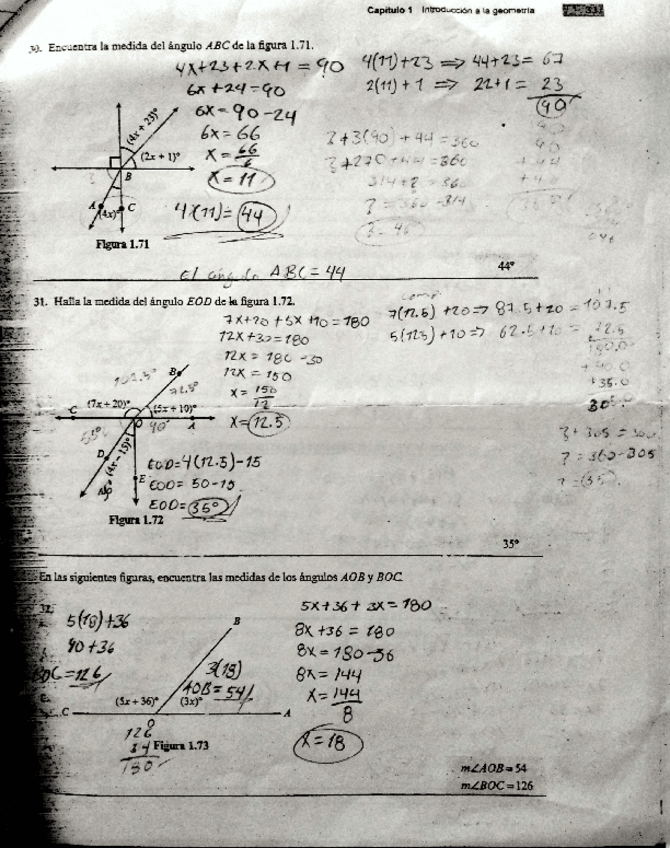 Capítulo 1 Introducción a la geometría
30. Encuentra la medida del ángulo ABC de la figura 1.71.
4x+23+2x+1=90
6x+24=90
6x=90-24
6x=66
x=66/6
x=11
4x(11)=44
4(11)+23 ⇒ 44+23= 67
2(11)+1 ⇒ 22+1= 23
90
?+3(90)+44=360
(4x + 23)°
(2x + 1)°
B
A
(4x)°
C
Figura 1.71
El ángulo ABC=44
44°
31. Halla la medida del ángulo EOD de la figura 1.72.
7x+20+5x+10=180
12x+30=180
12x=180-30
12x=150
x=150/12
x=12.5
7(12.5)+20⇒87.5+20=107.5
5(12.5)+10⇒62.5+10=72.5
180.0
?+305=360
?=360-305
B
72.5°
C
(7x + 20)°
(5x + 10)°
O
A
55°
90°
D
(4x − 15)°
E
EOD=4(12.5)-15
EOD=50-15
EOD=35°
Figura 1.72
35°
En las siguientes figuras, encuentra las medidas de los ángulos AOB y BOC.
32.
5(18)+36
90+36
BOC=126
5x+36+3x=180
8x+36=180
8x=180-36
8x=144
x=144/8
x=18
B
3(18)
AOB=54
C
(5x + 36)°
(3x)°
A
O
126
54
180
Figura 1.73
m∠AOB = 54
m∠BOC = 126